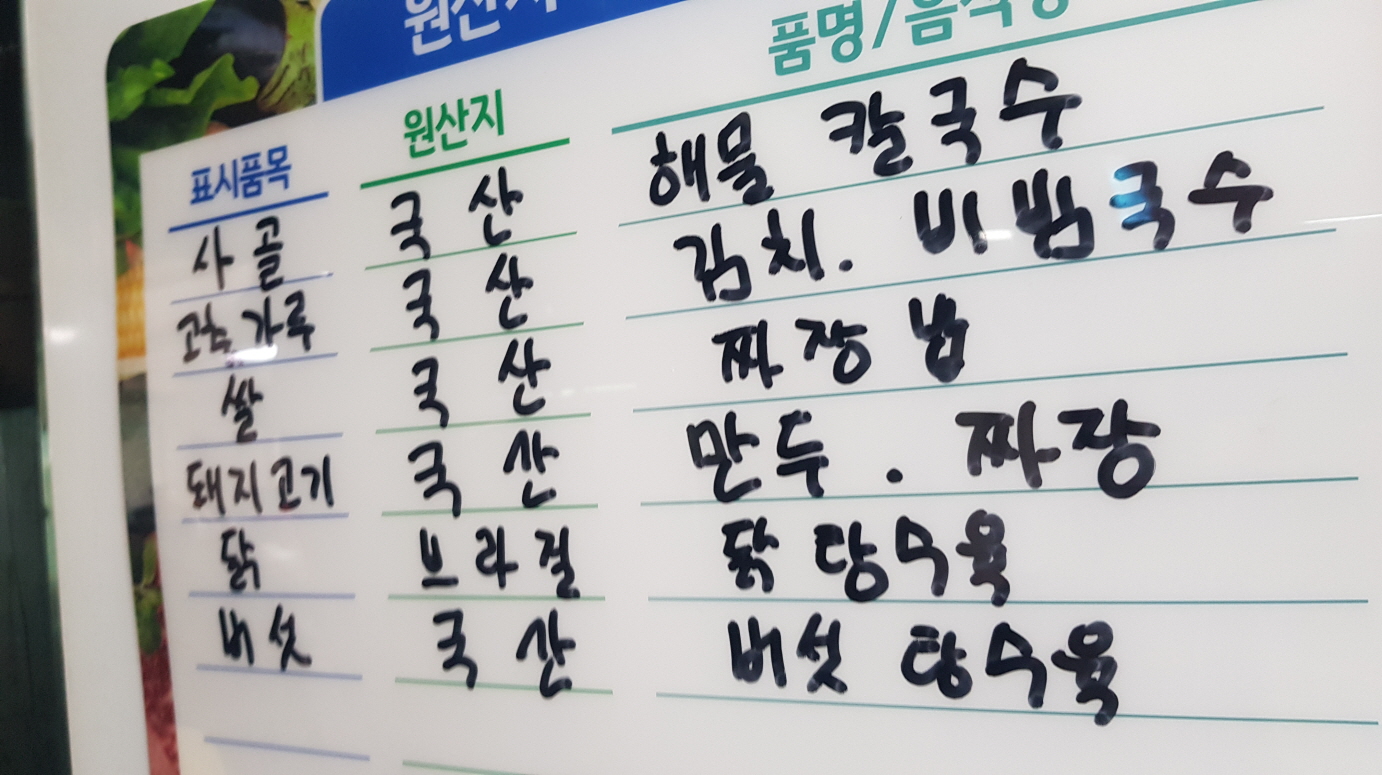 원산지
표시품목 원산지 품명/음식명
사골 국산 해물 칼국수
고추가루 국산 김치. 비빔국수
쌀 국산 짜장밥
돼지고기 국산 만두. 짜장
닭 브라질 닭 탕수육
버섯 국산 버섯 탕수육